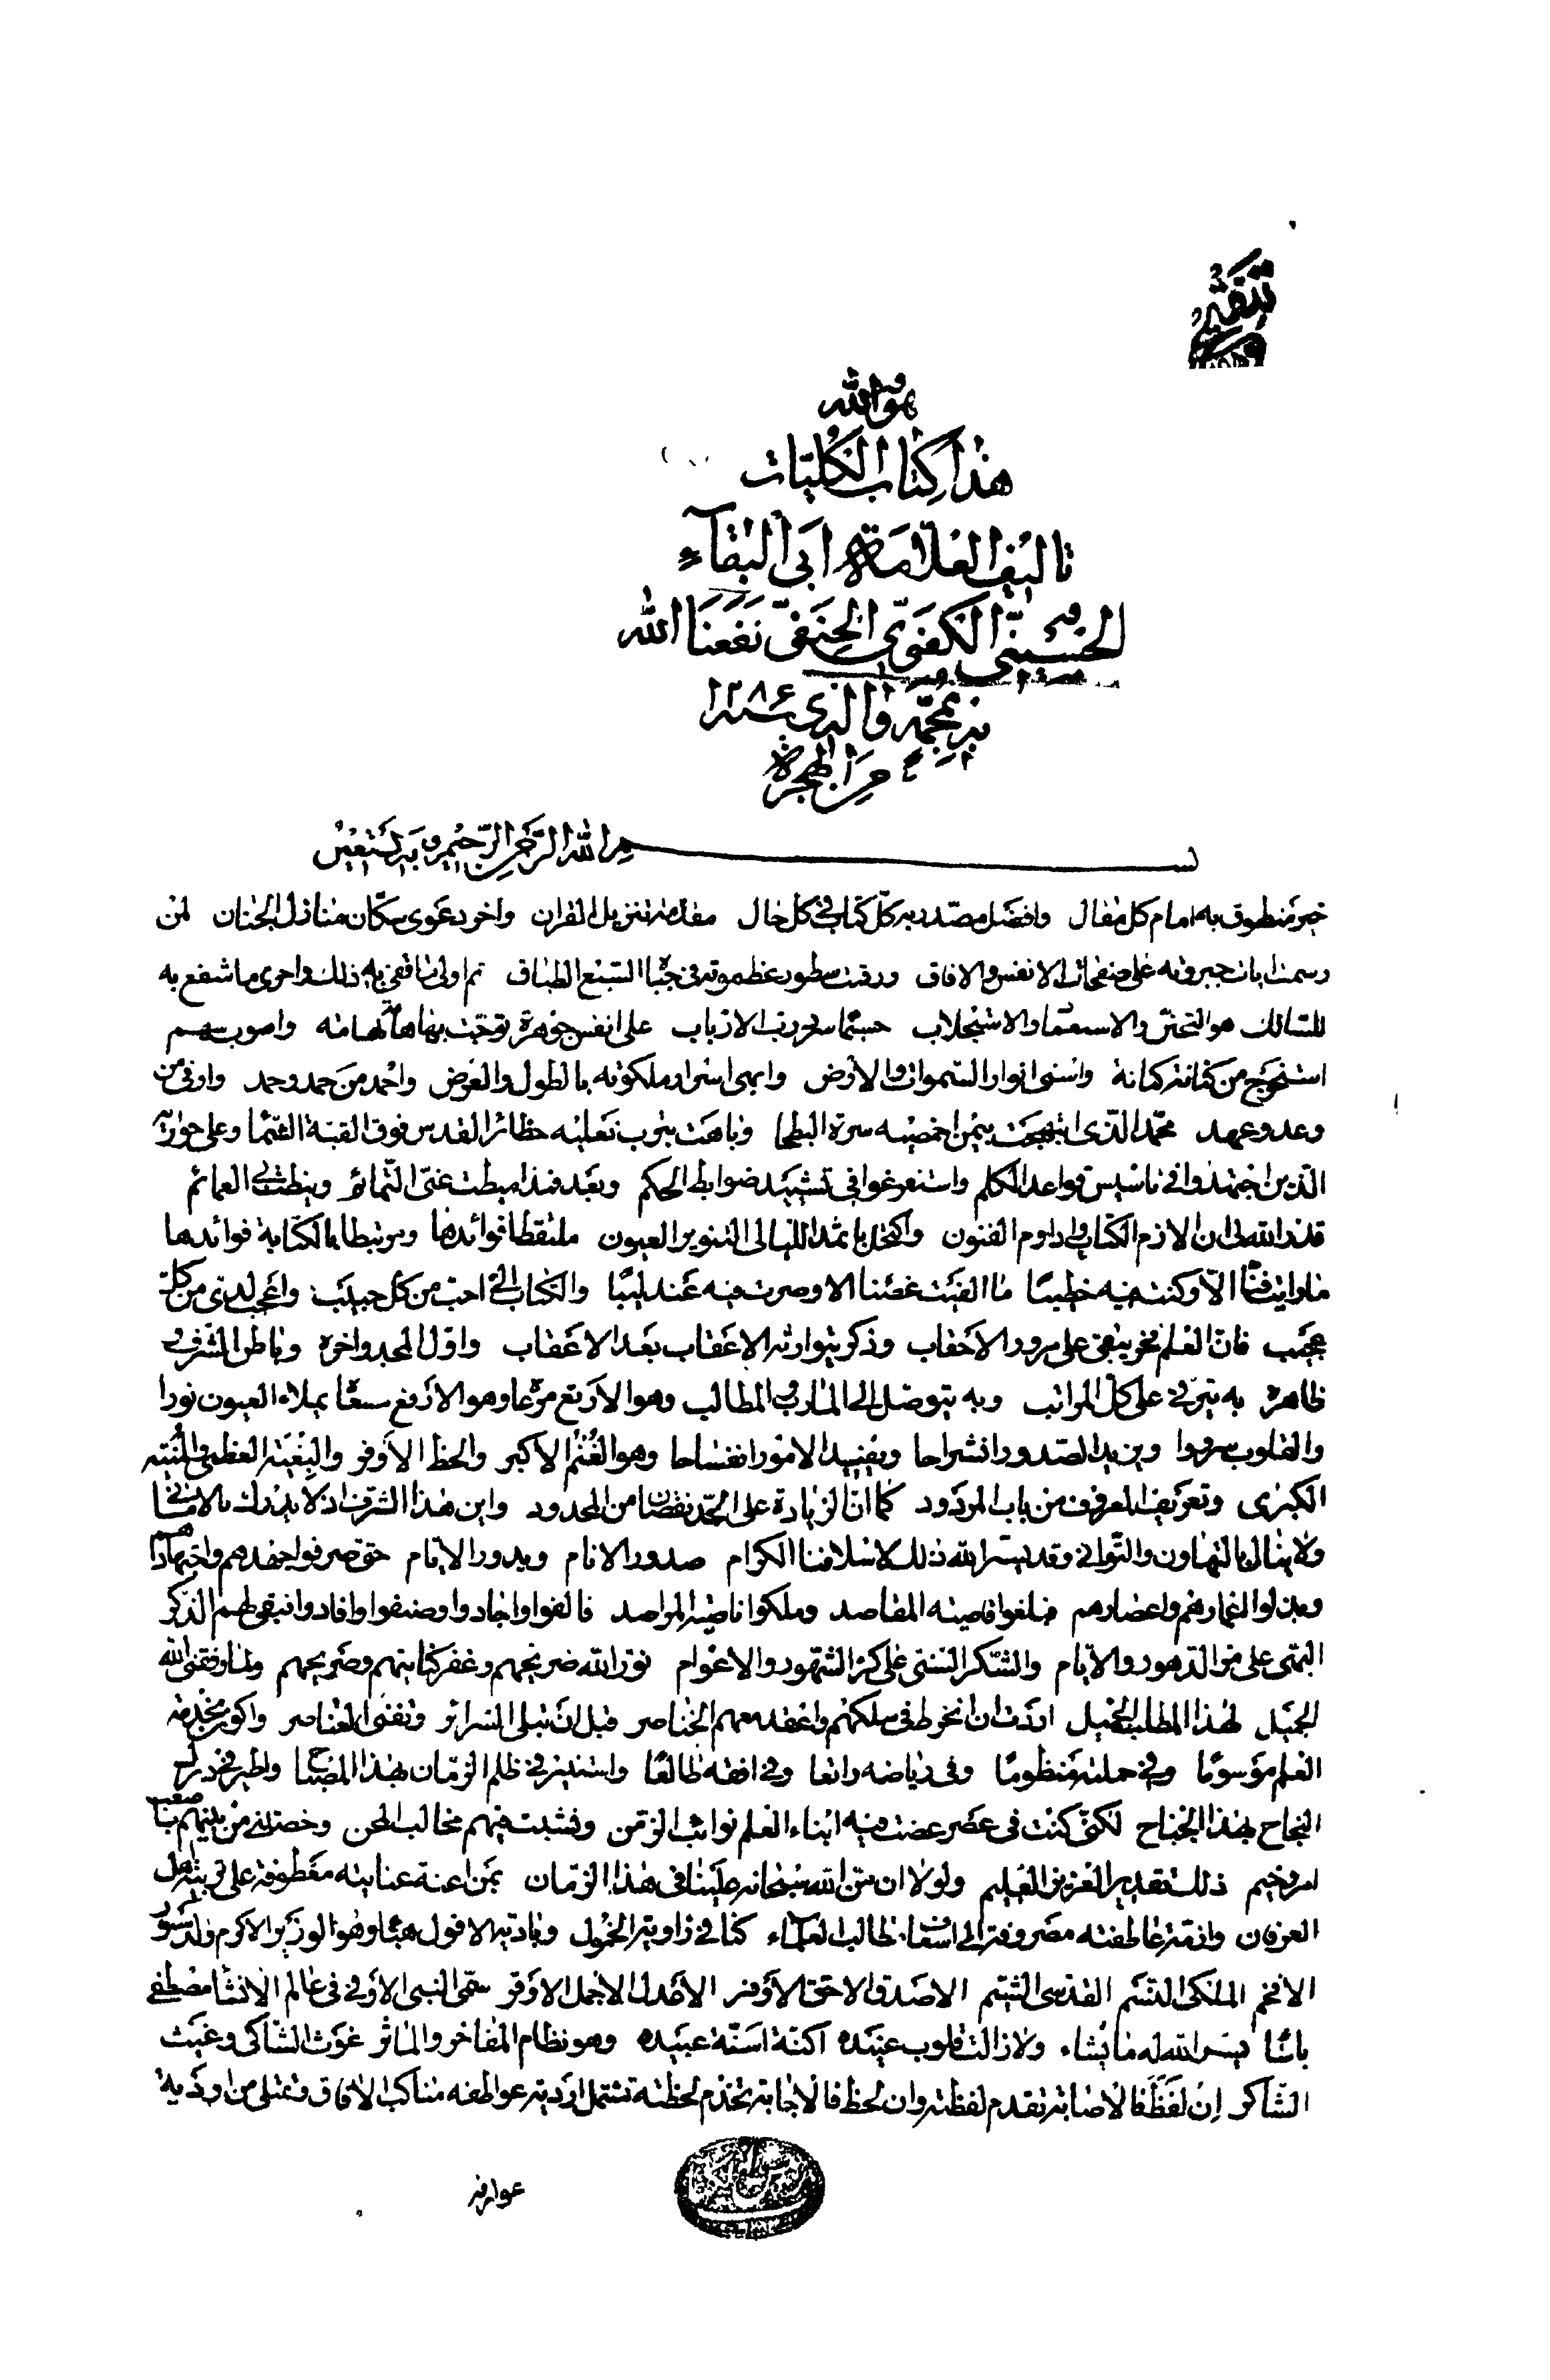 هو الله
هذا كتاب الكليات
تاليف العلامة ابى البقاء
الحسينى الكفوى الحنفى نفعنا الله
به بمحمد واله سنه ١٢٨٦
من الهجرة
بسم الله الرحمن الرحيم وبه نستعين
خير منطوق به امام كل مقال وافضل مصدر به كل كتاب فى كل حال مقدمة تنزيل القران واخر دعوى سكان منازل الجنان لمن
رسمت ايات جبروته على صفحات الانفس والافاق ورقمت سطور عظموته فى جباه السبع الطباق ثم اولى ما قفى به ذلك واحرى ما شفع به
للسالك هو التحنن والاستعطاف والاستجلاب حسبما سن رب الارباب على انفس جوهرة توجت بها هامة تهامة واصوب سهم
استخرج من كنانة كنانة واسنى انوار السموات والارض وابهى اسرار ملكوته بالطول والعرض واحمد من حمد وحمد واوفى من
وعد وعهد محمد الذى ابتهجت بيمن اخمصيه سرة البطحا وباهت بترب نعليه حظائر القدس فوق القبة الشما وعلى حواريه
الذين اجتهدوا فى تاسيس قواعد الكلم واستفرغوا فى تشييد ضوابط الحكم وبعد فمذ اميطت عنى التمائم ونيطت بى العمائم
قدر الله لى ان الازم الكتاب واداوم الفنون واكتحل باثمد الليالى لتنوير العيون ملتقطا فرائدها ومرتبطا بالكتابة فوائدها
ما رايت فنا الا وكنت فيه خطيبا ما الفيت غصنا الا وصرت فيه عندليبا والكتاب الى احب من كل حبيب واعجب لدى من كل
عجيب فان العلم فخر يبقى على مرور الاحقاب وذكر يتوارثه الاعقاب بعد الاعقاب واول المجد واخره وباطن الشرف و
ظاهره به يترقى على كل المراتب وبه يتوصل الى المارب والمطالب وهو الاربع مرعا وهو الارفع مسعا يملاء العيون نورا
والقلوب سرورا ويزيد الصدور انشراحا ويفيد الامور انفساحا وهو الغنم الاكبر والحظ الاوفر والبغية العظمى والمنية
الكبرى وتعريف المعروف من باب المردود كما ان الزيادة على الحد نقصان من المحدود واين هذا الشرف اذ لا يدرك بالامانى
ولا ينال بالتهاون والتوانى وقد يسر الله ذلك لاسلافنا الكرام صدور الانام وبدور الايام حتى صرفوا جهدهم واجتهادهم
وبذلوا اعمارهم واعصارهم فبلغوا قاصية المقاصد وملكوا ناصية المراصد فالفوا واجادوا وصنفوا وافادوا فبقى لهم الذكر
البهى على مر الدهور والايام والشكر السنى على كر الشهور والاعوام نور الله ضريحهم وغفر كنايتهم وصريحهم ولما وفقنى الله
الجميل لهذا المطلب الجليل اردت ان انخرط فى سلكهم واعقد معهم الخناصر قبل ان تبلى السرائر وتفنى العناصر واكون بخدمة
العلم موسوما وفى حملته منظوما وفى رياضه راتعا وفى افقه طالعا واستنير فى ظلم الزمان بهذا المصباح واطير فى درج
النجاح بهذا الجناح لكنى كنت فى عصر عضت فيه ابناء العلم نوائب الزمن ونشبت فيهم مخالب المحن وخصتنى من بينهم بنا صعب
امر وخيم ذلك تقدير العزيز العليم ولولا ان من الله سبحانه علينا فى هذا الزمان بمن اعنة عنايته معطوفة على تربية اهل
العرفان وازمة عاطفته مصروفة الى اسعاف مطالب العلماء كنا فى زاوية الخمول وبادية الافول هباء وهو الوزير الاكرم والدستور
الافخم الملكى القسم القدسى الشيم الاصدق الاحق الاوفر الاعدل الاجمل الاوقر سمى النبى الاوفى فى عالم الانشا مصطفى
باشا يسر الله له ما يشاء ولا زالت قلوب عبيده اكنة اسنة عبيده وهو نظام المفاخر والماثر غوث الشاكى وغيث
الشاكر ان لفظ فالاصابة تقدم لفظته وان لحظ فالاجابة تخدم لحظته تشتمل اردية عواطفه مناكب الافاق وتمتلى من اودية
عوارفه